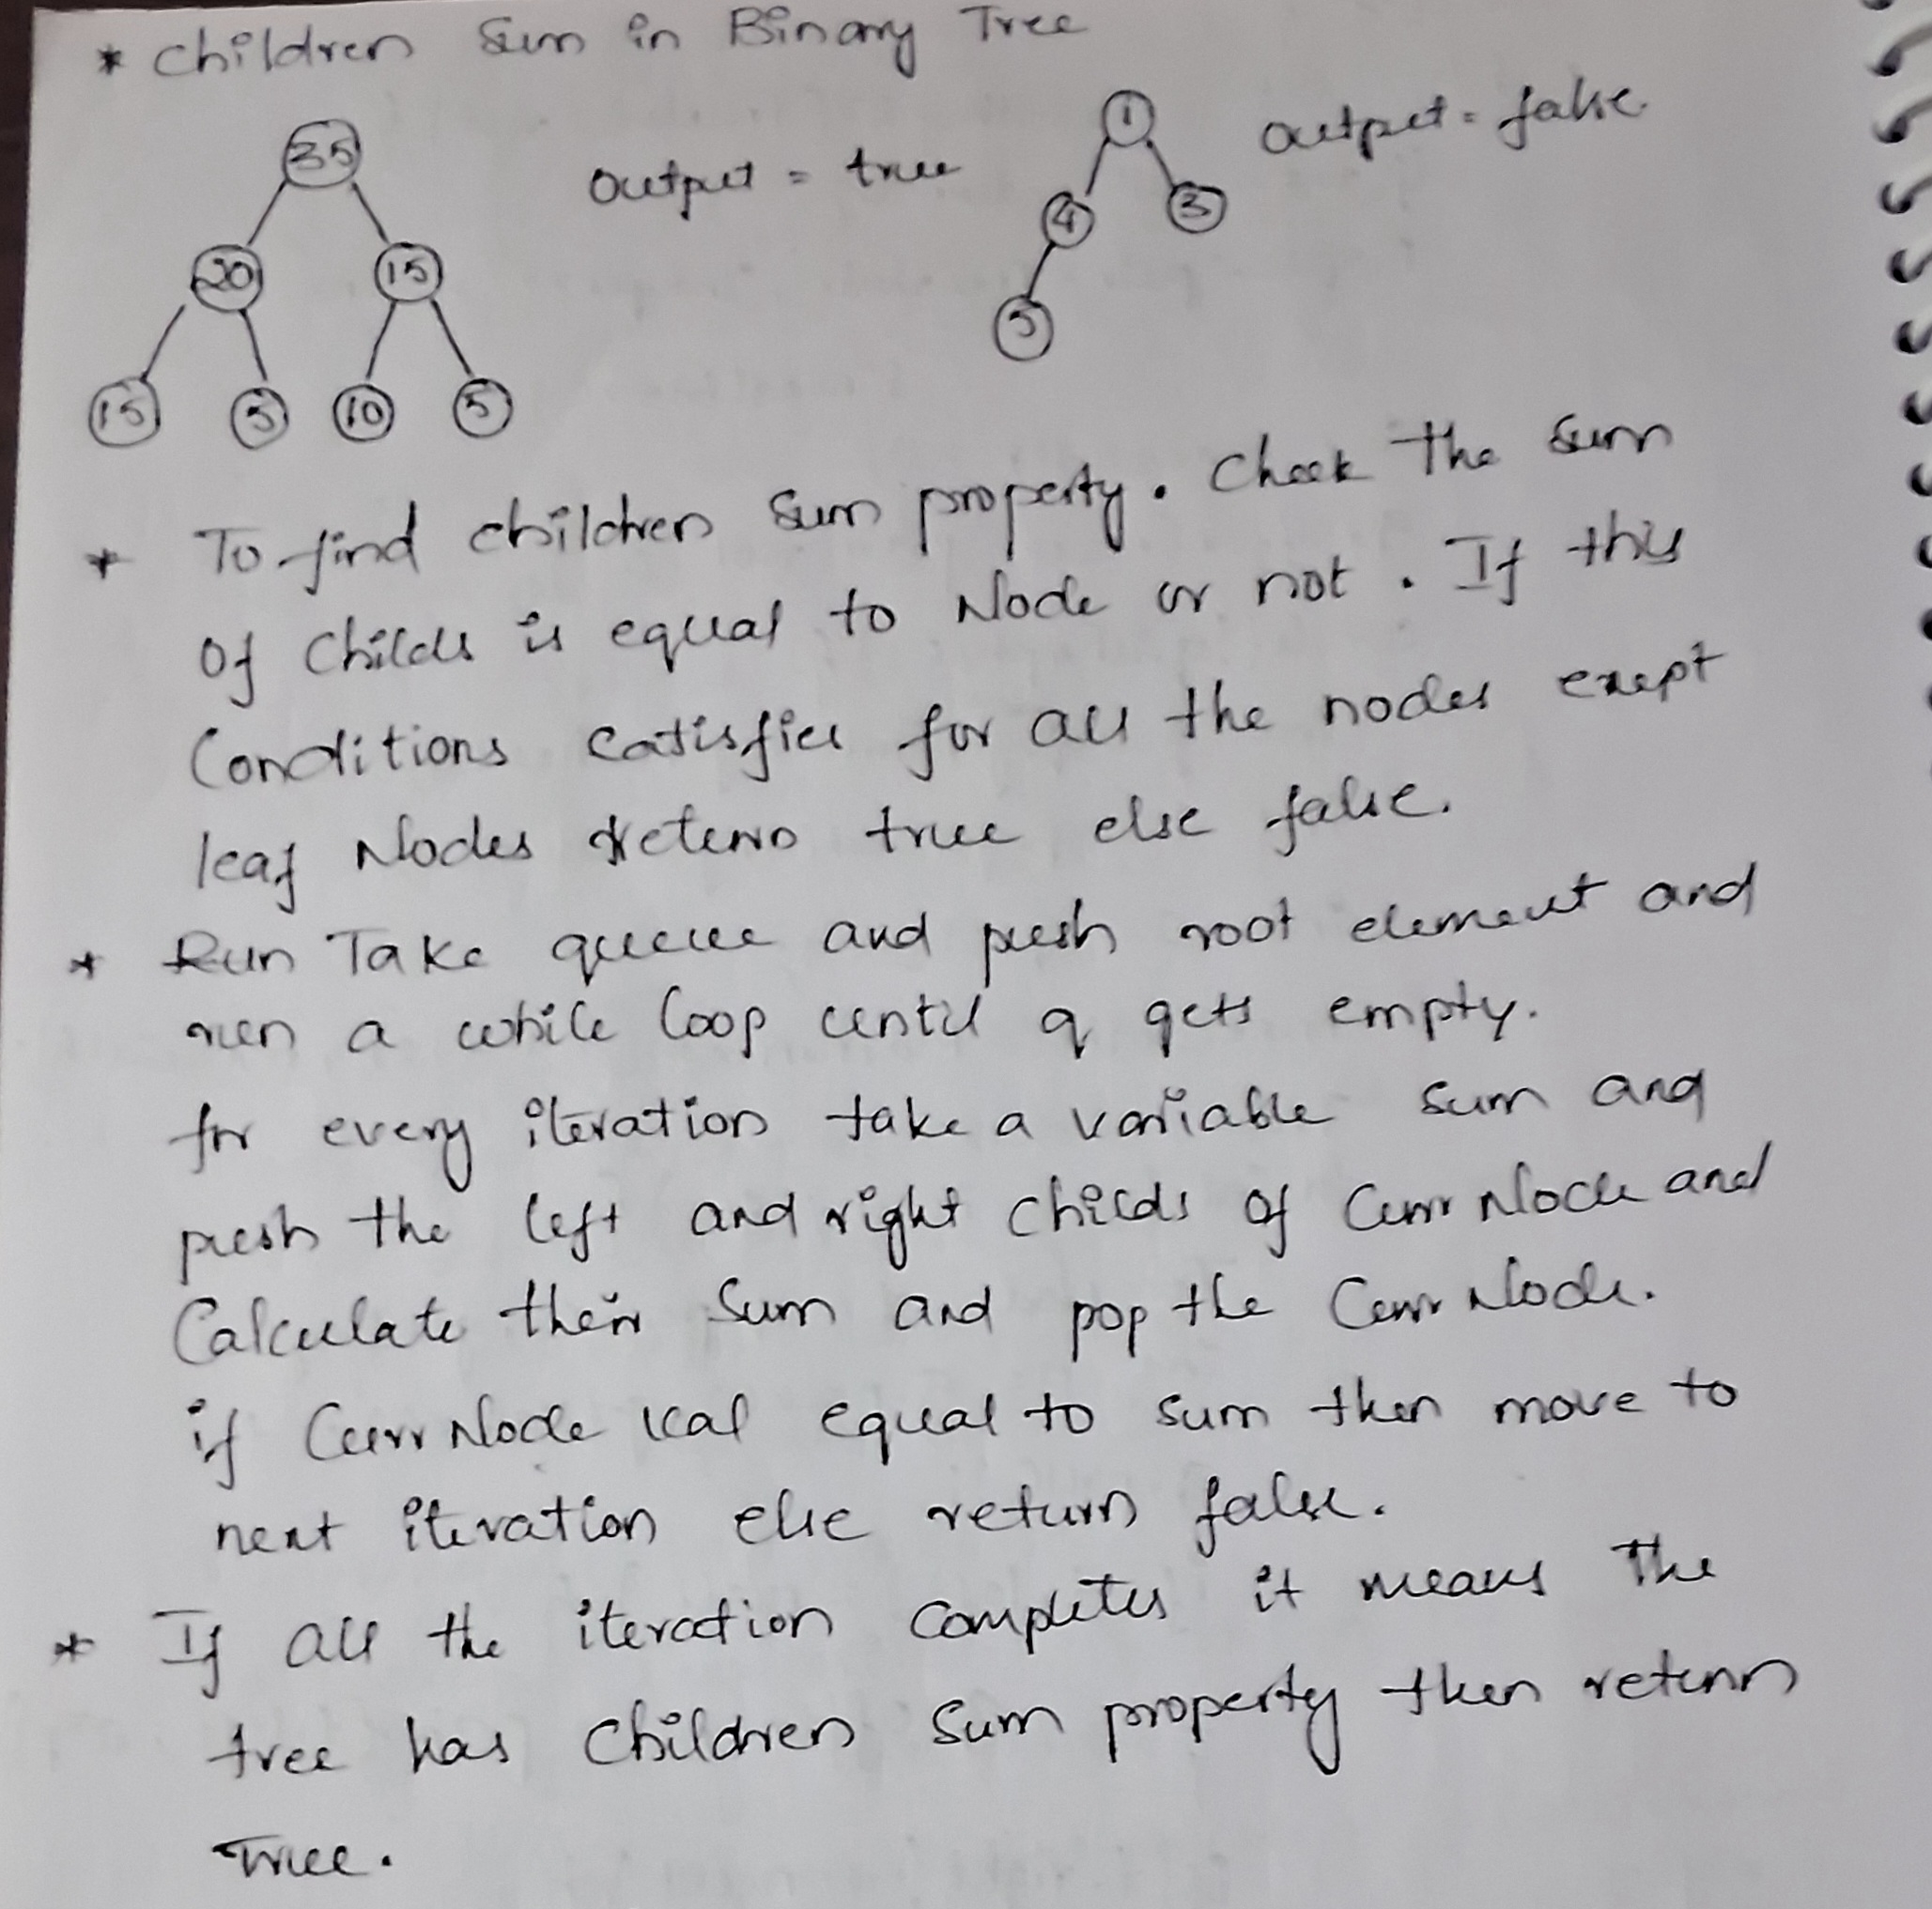 * Children Sum in Binary Tree
35
20 15
15 5 10 5
output = true
1
4 3
5
output = false
* To find children sum property. Check the sum
of childs is equal to Node or not. If this
Conditions satisfies for all the nodes exept
leaf Nodes return true else false.
* Run Take queue and push root element and
run a while loop until q gets empty.
for every iteration take a variable sum and
push the left and right childs of Curr Node and
Calculate their sum and pop the Curr Node.
if Curr Node val equal to sum then move to
next iteration else return false.
* If all the iteration completes it means the
tree has children sum property then return
True.